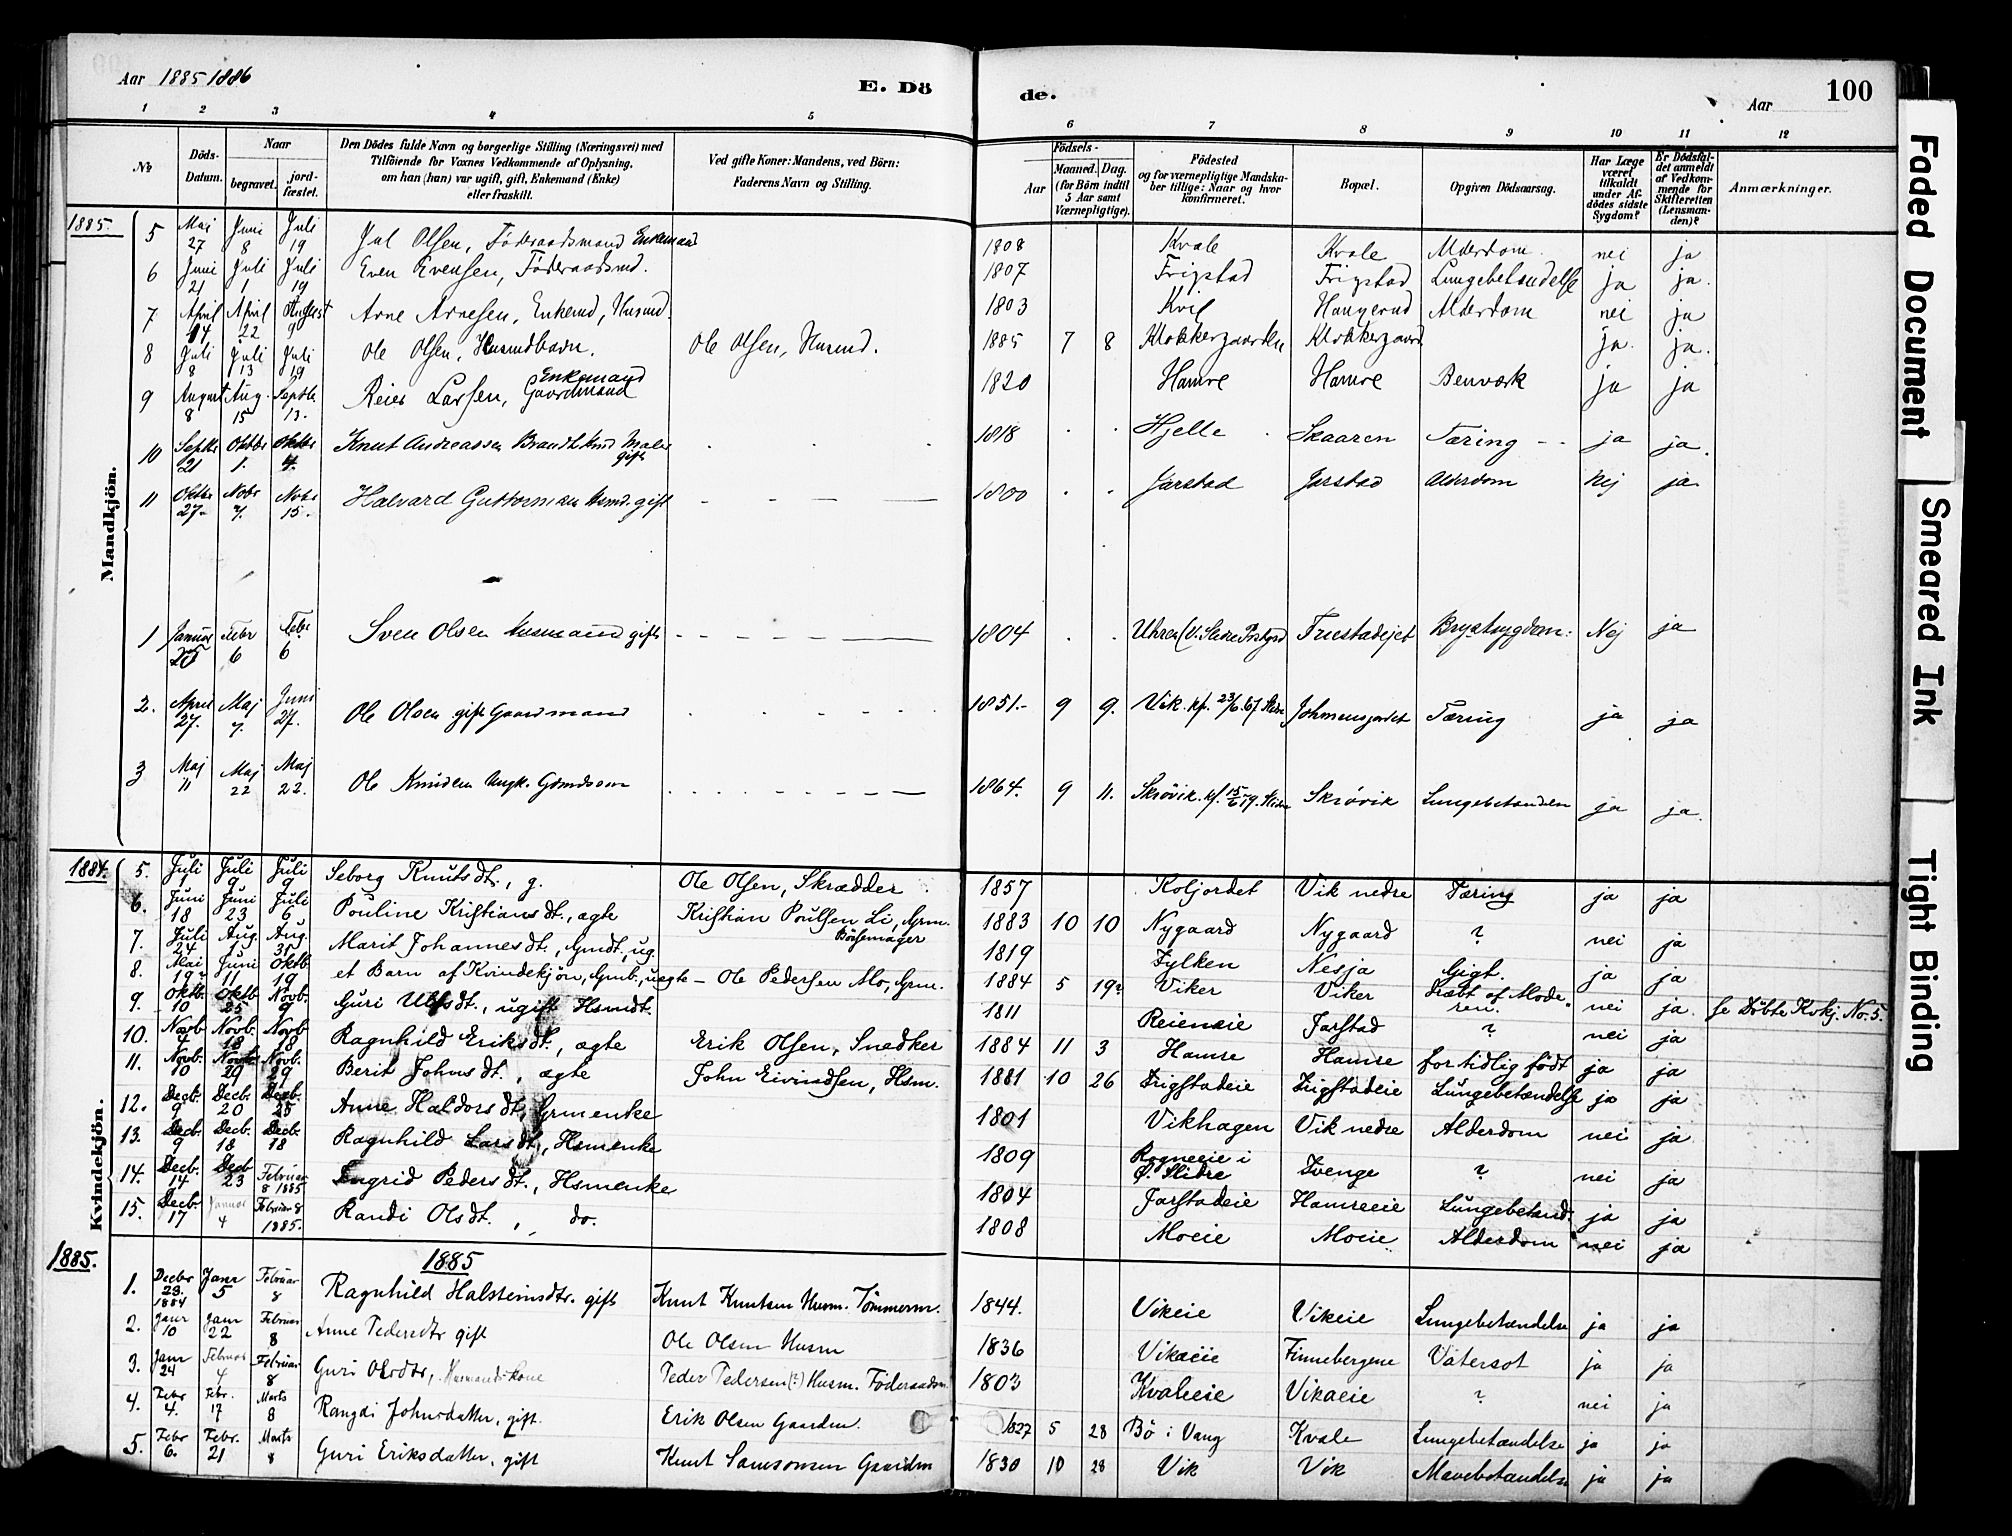 Aar 1885 1886
E. Dö
de.
Aar
100
1 2 3 4 5 6 7 8 9 10 11 12
No
Döds-Datum.
Naar
begravet.
jord-fæstet.
Den Dödes fulde Navn og borgerlige Stilling (Næringsvei) med
Tilföiende for Voxnes Vedkommende af Oplysning,
om han (hun) var ugift, gift, Enkemand (Enke)
eller fraskilt.
Ved gifte Koner: Mandens, ved Börn:
Faderens Navn og Stilling.
Födsels-
Aar
Maaned.
Dag.
(for Börn indtil
5 Aar samt
Værnepligtige).
Födested
og for værnepligtige Mandska-
ber tillige: Naar og hvor
konfirmeret.
Bopæl.
Opgiven Dödsaarsag.
Har Læge
været
tilkaldt
under Af-
dödes sidste
Sygdom?
Er Dödsfal-
det anmeldt
af Vedkom-
mende for
Skifteretten
(Lensman-
den)?
Anmærkninger.
Mandkjön.
1885.
5 Mai 27 Juni 8 Juli 19 Jul Olsen, Föderaadsmand Enkemand 1808 Kvale Kvale Alderdom nei ja
6 Juni 21 Juli 1 Juli 19 Even Evensen, Föderaadsmd. 1807 Frigstad Frigstad Lungebetændelse ja ja.
7 April 14 April 22 August 9 Arne Arnesen, Enkemd, Husmd. 1803 Kvil Haugerud Alderdom nei ja
8 Juli 8 Juli 13 Juli 19 Ole Olsen, Husmdbarn. Ole Olsen, Husmd. 1885 7 8 Klokkergaarden Klokkergaard ja. ja.
9 August 8 Aug. 15 Septbr 13. Reier Larsen, Enkemand Gaardmand 1820 Hamre Hamre Benværk ja ja
10 Septbr 21 Oktbr 1. Oktbr 4. Knut Andreassen Brandt Maler gift 1818 Hjelle Skaaren Tæring ja ja.
11 Oktbr 27 Nobr 7. Nobr 15. Halvard Guttormsen Husmd. gift 1800 Jarstad Jarstad Alderdom Nej ja
1 Januar 25 Febr 6 Febr 6 Sven Olsen Husmand gift 1804 Uhren (V. Slidre Prstgjd Brystsygdom: Nej ja
2. April 27. Maj 7. Juni 27. Ole Olsen gift Gaardmand 1851. 9 9. Vik. kf. 23/6 67 Slidre Tæring ja ja
3 Maj 11 Maj 22 Maj 22. Ole Knudsen Ungk. Grmdsøn 1864. 9 11. Skrövik. kf. 15/6 79. Slidre Skrövik Lungebetænden ja ja.
Kvindekjön.
1884.
5. Juli 1 Juli 9 Juli 9 Seborg Knutsdt., g. Ole Olsen, Skrædder 1857 Koljordet Vik nedre Tæring ja ja
6. Juni 18 Juni 23 Juli 6 Pouline Kristiansdt., ægte Kristian Poulsen Li, Grm. Börsemager 1883 10 10 Nygaard Nygaard ? nei ja
7. Juli 24 Aug. 1 Aug. 31 Marit Johannesdt., Gmdt, ug. 1819 Fylken Nesja Gigt. ja ja
8. Mai 19? Juni 11 Oktb. 19 et Barn af Kvindekjön, Gmb., uægte – Ole Pedersen Mo, Grm. 1884 5 19? Viker Viker Dræbt af Moderen. nei ja. se Döbte Kvkj. No. 5.
9. Oktb. 10 Oktb. 25 Novb. 9 Guri Ulfsdt., ugift Hsmdt. 1811 Reieneie Jarstad ? nei ja
10. Novb. 4 Novb. 18 Novb. 18 Ragnhild Eriksdt., ægte Erik Olsen, Snedker 1884 11 3 Hamre Hamre for tidlig födt ja ja
11. Novb. 10 Novb. 29 Novb. 29 Berit Johnsdt., ægte John Eivindsen, Hsm. 1881 10 26 Frigstadeie Frigstadeie Lungebetændelse ja ja
12. Decb. 9 Decb. 20 Decb. 25 Anne Haldorsdt., Grmenke 1801 Vikhagen Vik nedre Alderdom nei ja
13. Decb. 9 Decb. 18 Decb. 18 Ragnhild Larsdt., Hsmenke 1809 Rogneeie i Ø. Slidre Tvenge ? nei ja
14. Decb. 14 Decb 23 Februar 8 1885 Ingrid Pedersdt., Hsmenke 1804 Jarstadeie Hamreeie Lungebetænd. ja ja
15. Decb. 17 Januar 4 Februar 8 1885. Randi Olsdt., do. 1808 Moeie Moeie Alderdom nei ja
1885. 1885
1. Decbr 23. 1884 Janr 5 Februar 8 Ragnhild Halsteinsdtr. gift Knut Knutsen Husm. Tömmerm. 1844. Vikeie Vikeie Lungebetændelse ja ja
2. Janr 10 Janr 22 Februar 8 Anne Pedersdtr gift Ole Olsen Husm 1836 Vikaeie Finnebergene Vatersot ja ja
3. Janr 24 Februar 4 Februar 8 Guri Olsdtr, Husmandskone Peder Pedersen (?) Husm. Föderaadsm. 1803 Kvaleeie Vikaeie ? nei ja
4. Febr 4. Febr. 17 Marts 8 Rangdi Johnsdatter, gift. Erik Olsen Gaardm. 1827 5 28 Bö i Vang Kvale Lungebetændelse ja ja
5. Febr 6. Febr. 21 Marts 8 Guri Eriksdatter, gift Knut Samsonsen Gaardm 1830 10 28 Vik Vik Mavebetændelse ja ja
Faded Document
Smeared Ink
Tight Binding